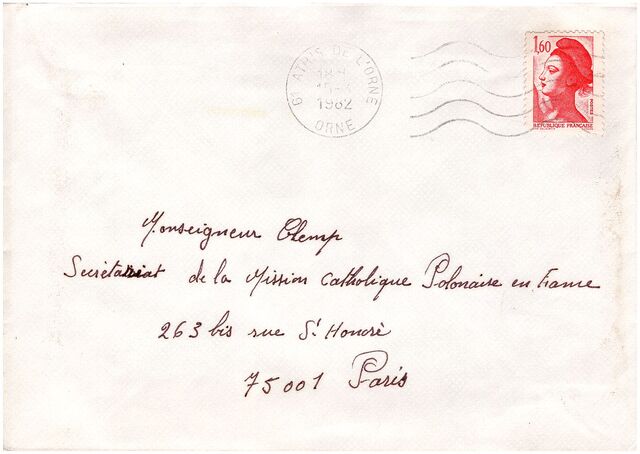 61 ATHIS DE L'ORNE
1982
ORNE
1,60
POSTES
REPUBLIQUE FRANÇAISE
Monseigneur Clemp
Secrétariat de la Mission Catholique Polonaise en France
263 bis rue St Honoré
75001 Paris